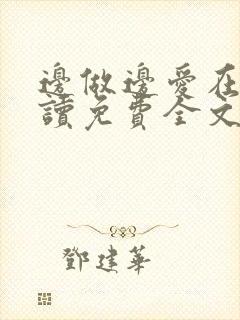 邊做邊愛在
讀免費全文
鄧建華